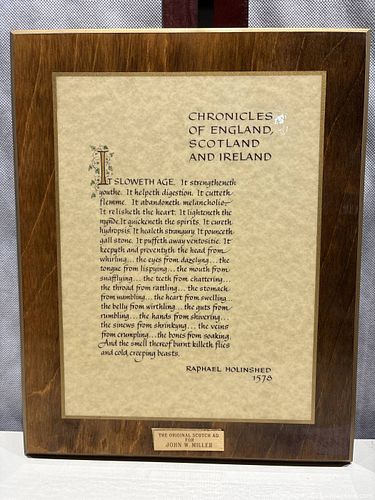 CHRONICLES
OF ENGLAND,
SCOTLAND
AND IRELAND
IT SLOWETH AGE. It strengtheneth
youthe. It helpeth digestion. It cutteth
flemme. It abandoneth melancholie.
It relisheth the heart. It lighteneth the
mynde. It quickeneth the spirits. It cureth
hydropsis. It healeth strangury. It pounceth
gall stone. It puffeth away ventositie. It
keepyth and preventyth the head from
whirling... the eyes from dazelyng... the
tongue from lispyng... the mouth from
snafflying... the teeth from chattering...
the throad from rattling... the stomach
from wambling... the heart from swelling
the belly from wirthling... the guts from
rumbling... the hands from shivering...
the sinews from shrinkyng... the veins
from crumpling... the bones from soaking.
And the smell thereof burnt killeth flies
and cold, creeping beasts.
RAPHAEL HOLINSHED
1578
THE ORIGINAL SCOTCH AD
FOR
JOHN W. MILLER